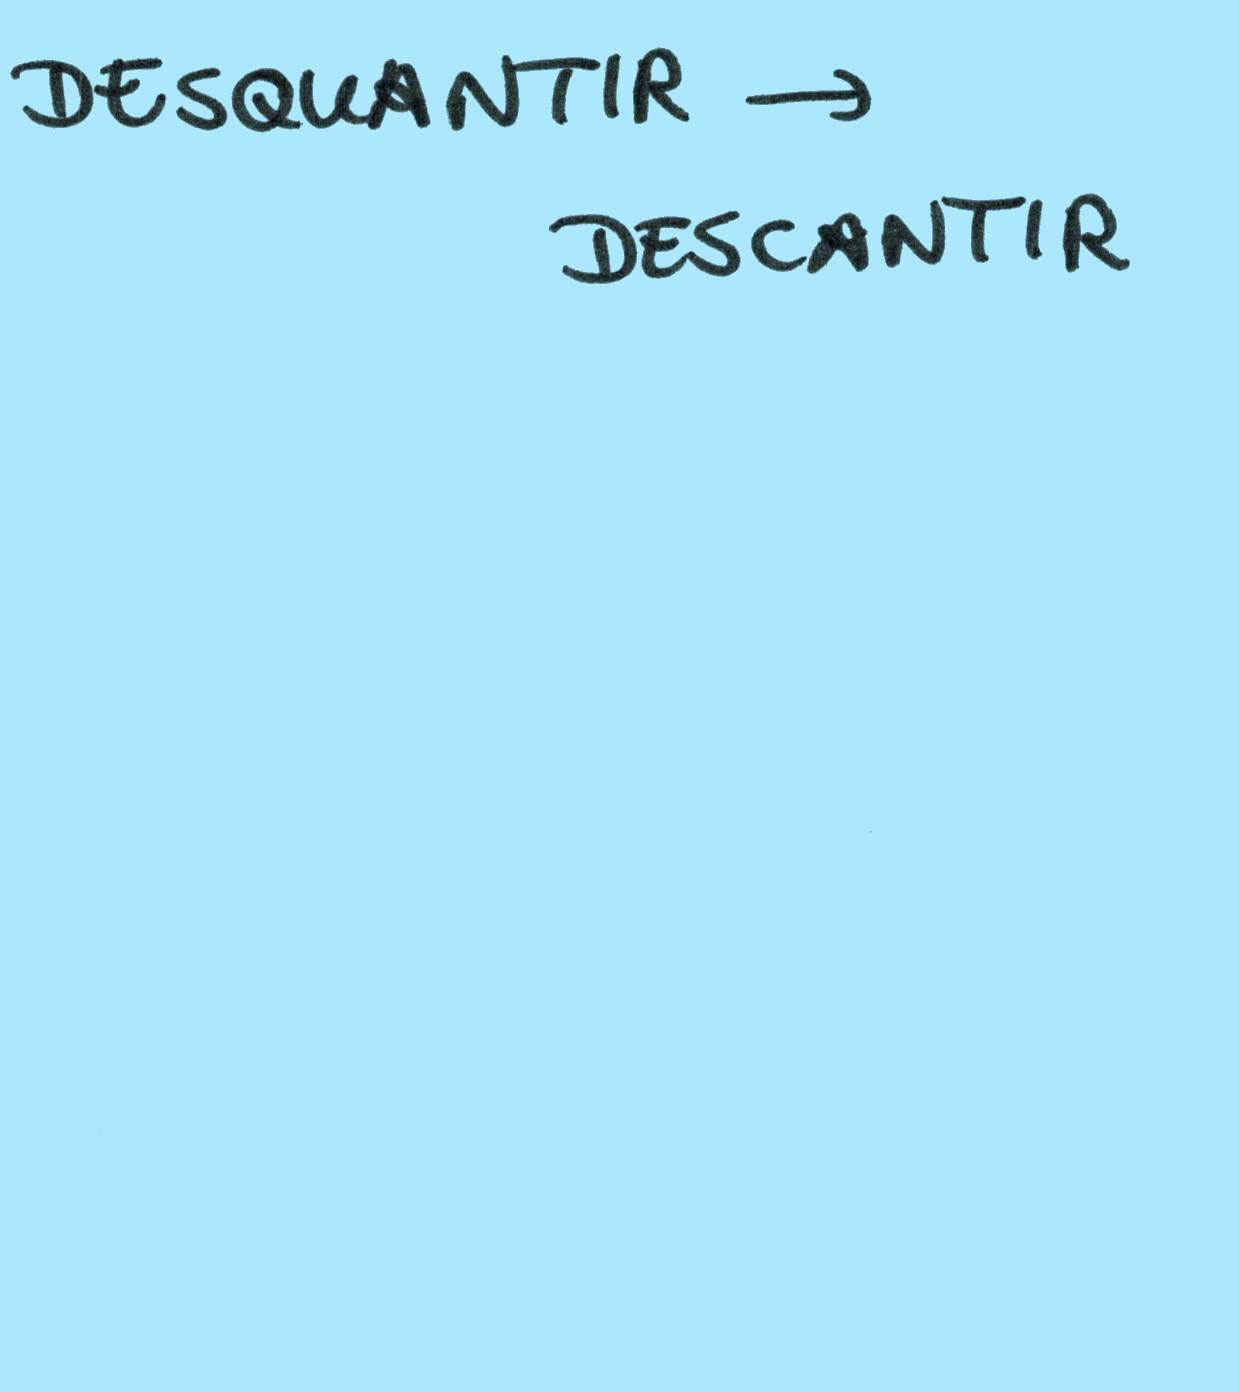 DESQUANTIR →
DESCANTIR